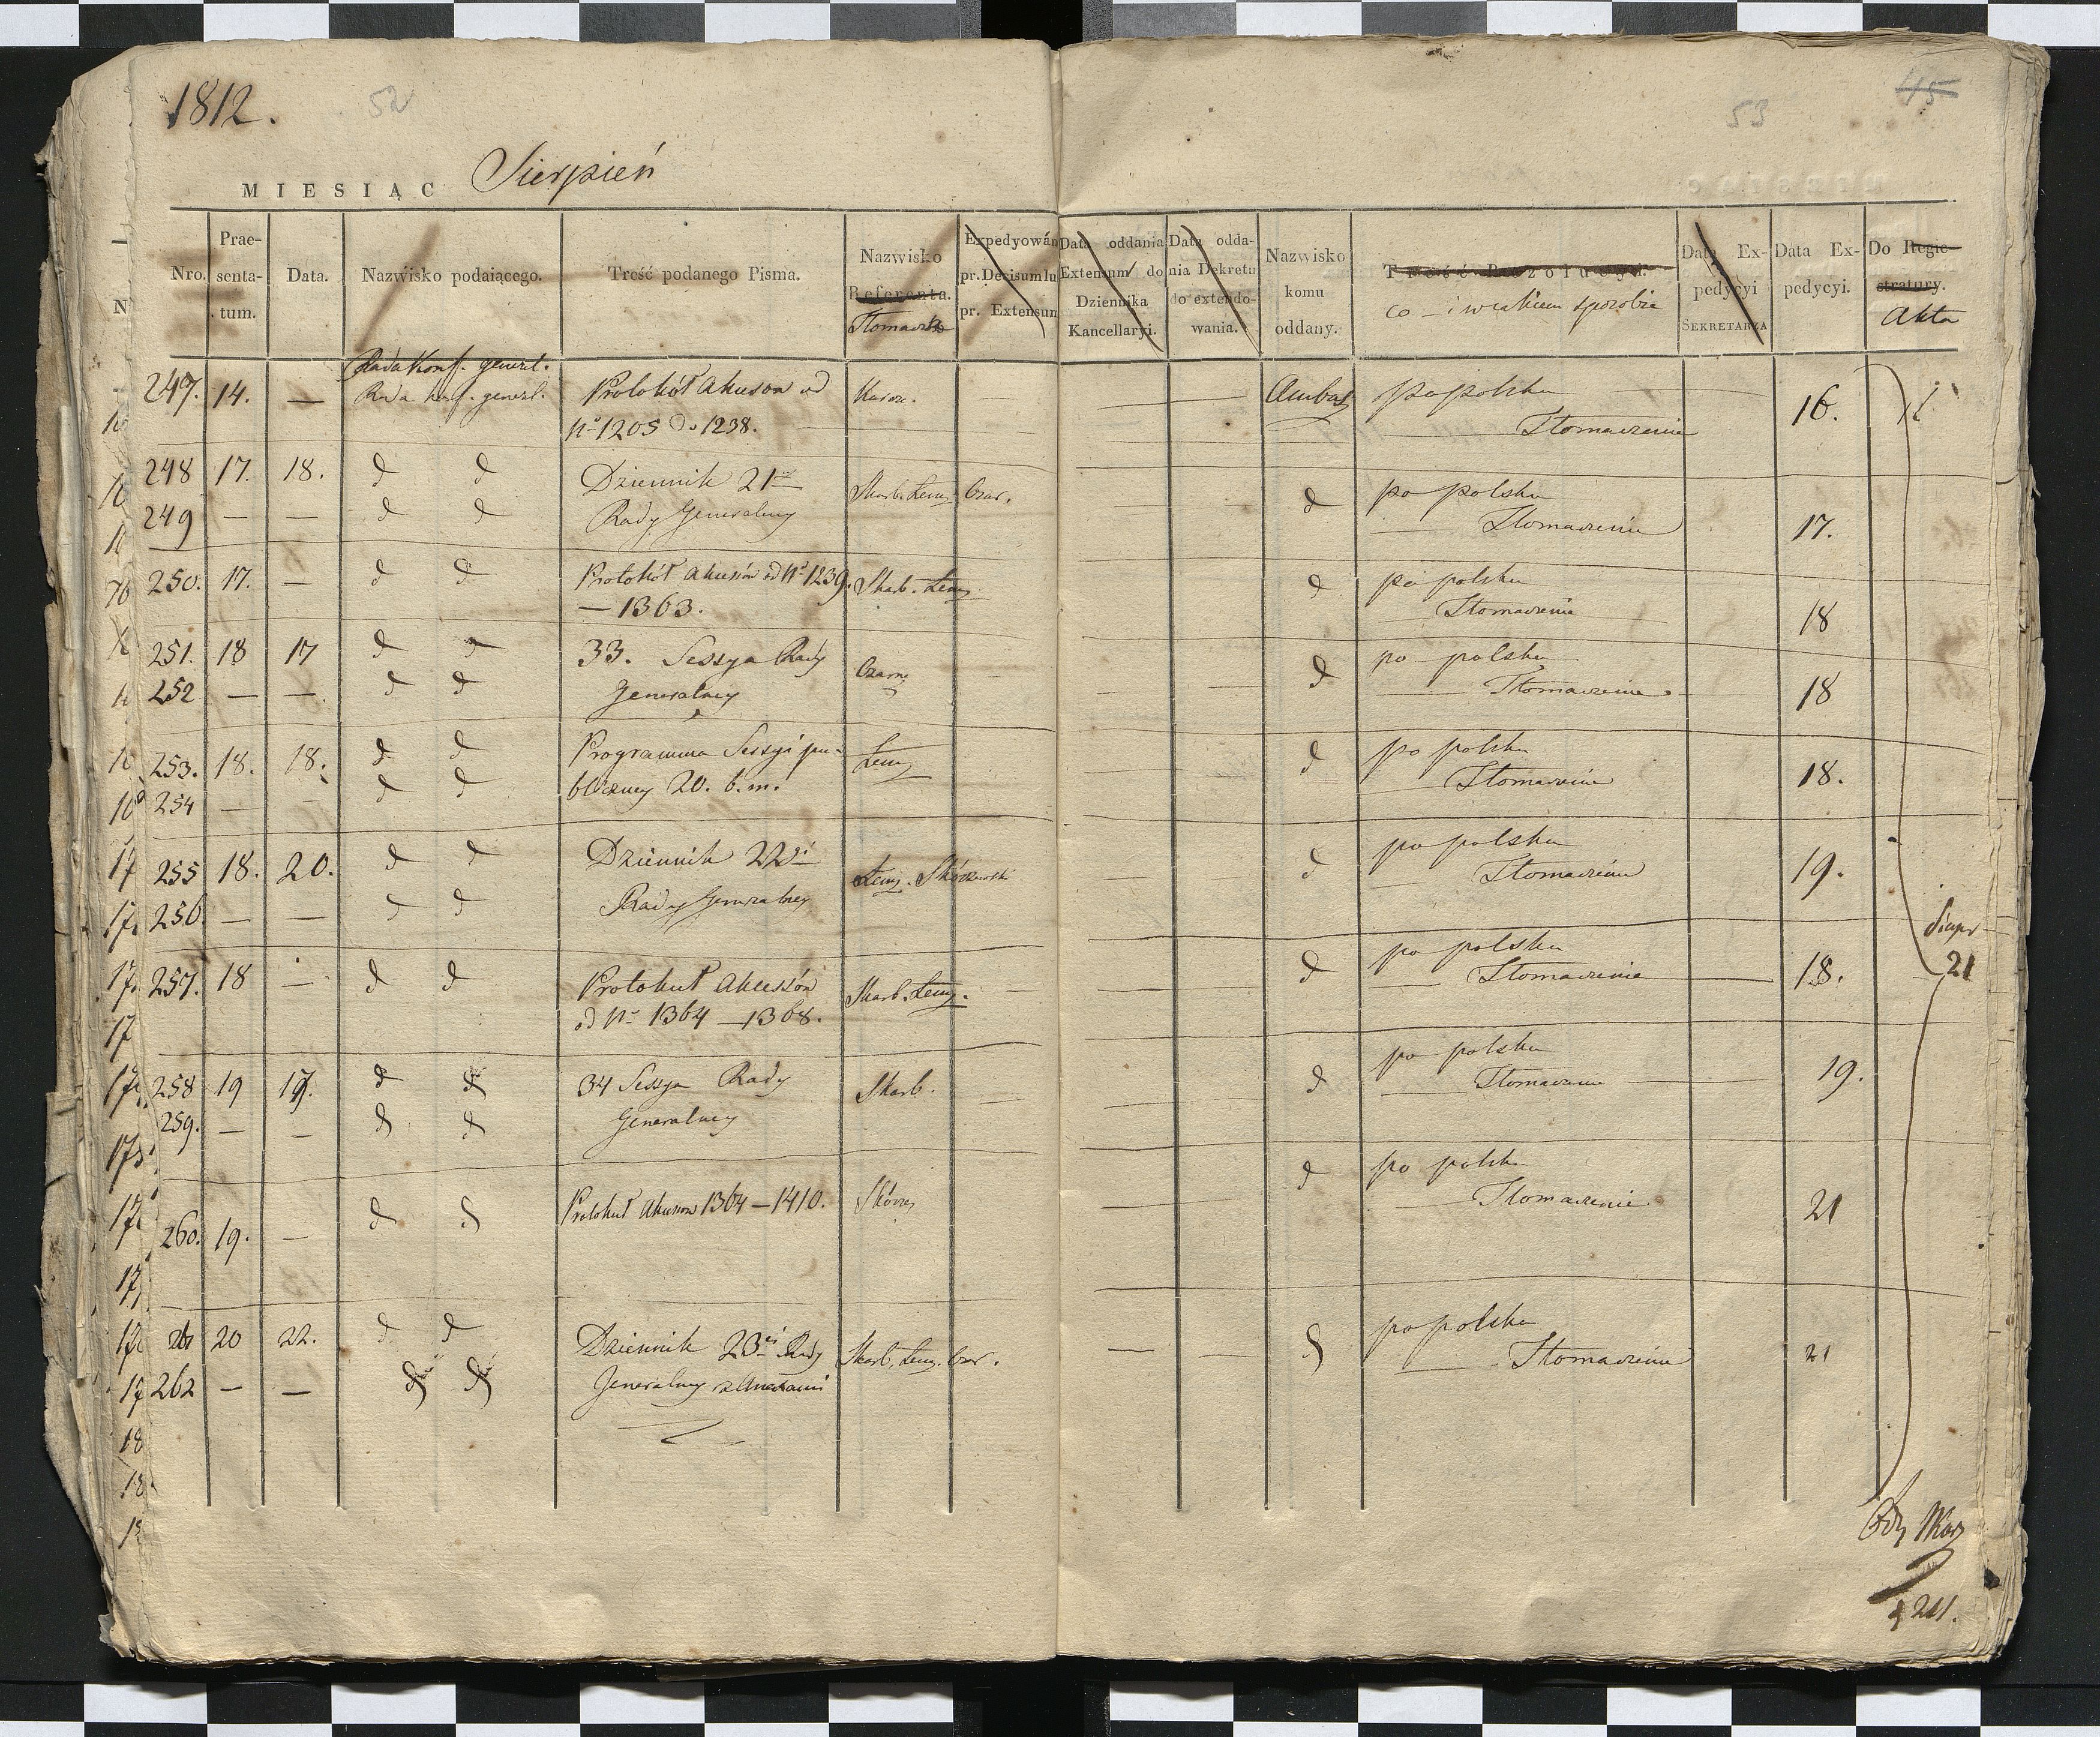 1812.
52
53
45
MIESIĄC Sierpień
Nro.
Prae-
senta-
tum.
Data.
Nazwisko podaiącego.
Treść podanego Pisma.
Nazwisko
Referenta.
Tłomacza
Expedyowán
pr. Decisum lu
pr. Extensum
Data oddania
Extensum do
Dziennika
Kancellaryi.
Data odda-
nia Dekretu
do extendo-
wania.
Nazwisko
komu
oddany.
Treść Rezolucyi.
co – i w jakiem sposobie
Data Ex-
pedycyi
SEKRETARZA
Data Ex-
pedycyi.
Do Regie-
stratury.
Akta
Rada Konf. generl.
247. 14. — Rada konf. generl. Protokół Akcesow od Ambas po polsku 16.
No 1205 do 1238. Tłomaczenie
248 17. 18. d d Dziennik 21 Skarb. Lem. Czar. d po polsku
249 — — d d Rady Generalney Tłomaczenie 17.
250. 17. — d d Protokół Akcesów od No 1239. Skarb. Lem. d po polsku
— 1363. Tłomaczenie 18
251. 18 17 d d 33. Sessya Rady Czarn. d po polsku
252 — — d d Generalney Tłomaczenie 18
253. 18. 18. d d Programma Sessyi pu- Lem. d po polsku
254 — — d d bliczney 20. b.m. Tłomaczenie 18.
255 18. 20. d d Dziennik 22 Lem. Skórzewski d po polsku
256. — — d d Rady Generalney Tłomaczenie 19.
257. 18 — d d Protokuł Akcessów Skarb. Lem. d po polsku
od No 1364 — 1368. Tłomaczenie 18.
21
258 19 19. d d 34 Sessya Rady Skarb. d po polsku
259. — — d d Generalney Tłomaczenie 19.
260. 19. — d d Protokuł Akcesow 1364 — 1410. Skórz d po polsku
Tłomaczenie 21
261 20 22. d d Dziennik 23 Rady Skarb. Lem. Czar. d po polsku
262 — — d d Generalney z Anexami Tłomaczenie 21
211.